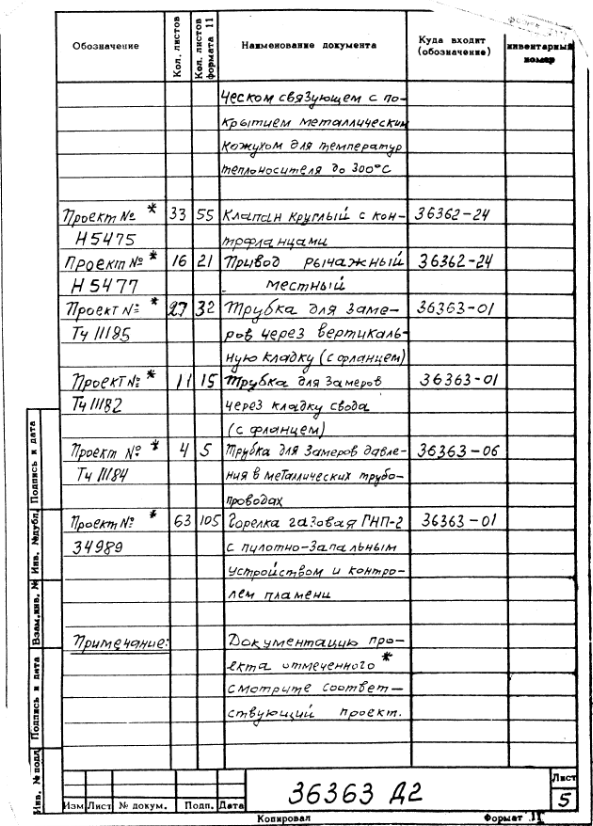 Обозначение Кол. листов Кол. листов формата 11 Наименование документа Куда входит (обозначение) инвентарный номер
ческом связующем с по-
крытием металлическим
кожухом для температур
теплоносителя до 300°С
Проект № * 33 55 Клапан круглый с кон- 36362-24
Н5475 трфланцами
Проект № * 16 21 Привод рычажный 36362-24
Н5477 местный
Проект № * 27 32 Трубка для заме- 36363-01
Тч 11185 ров через вертикаль-
ную кладку (с фланцем)
Проект № * 11 15 Трубка для замеров 36363-01
Тч 11182 через кладку свода
(с фланцем)
Проект № * 4 5 Трубка для замеров давле- 36363-06
Тч 11184 ния в металлических трубо-
проводах
Проект № * 63 105 Горелка газовая ГНП-2 36363-01
34989 с пилотно-запальным
устройством и контро-
лем пламени
Примечание: Документацию про-
екта отмеченного *
смотрите соответ-
ствующий проект.
Инв. № подл. Подпись и дата Взам.инв. № Инв. №дубл. Подпись и дата
36363 Д2
Лист
5
Изм Лист № докум. Подп. Дата
Копировал Формат 11